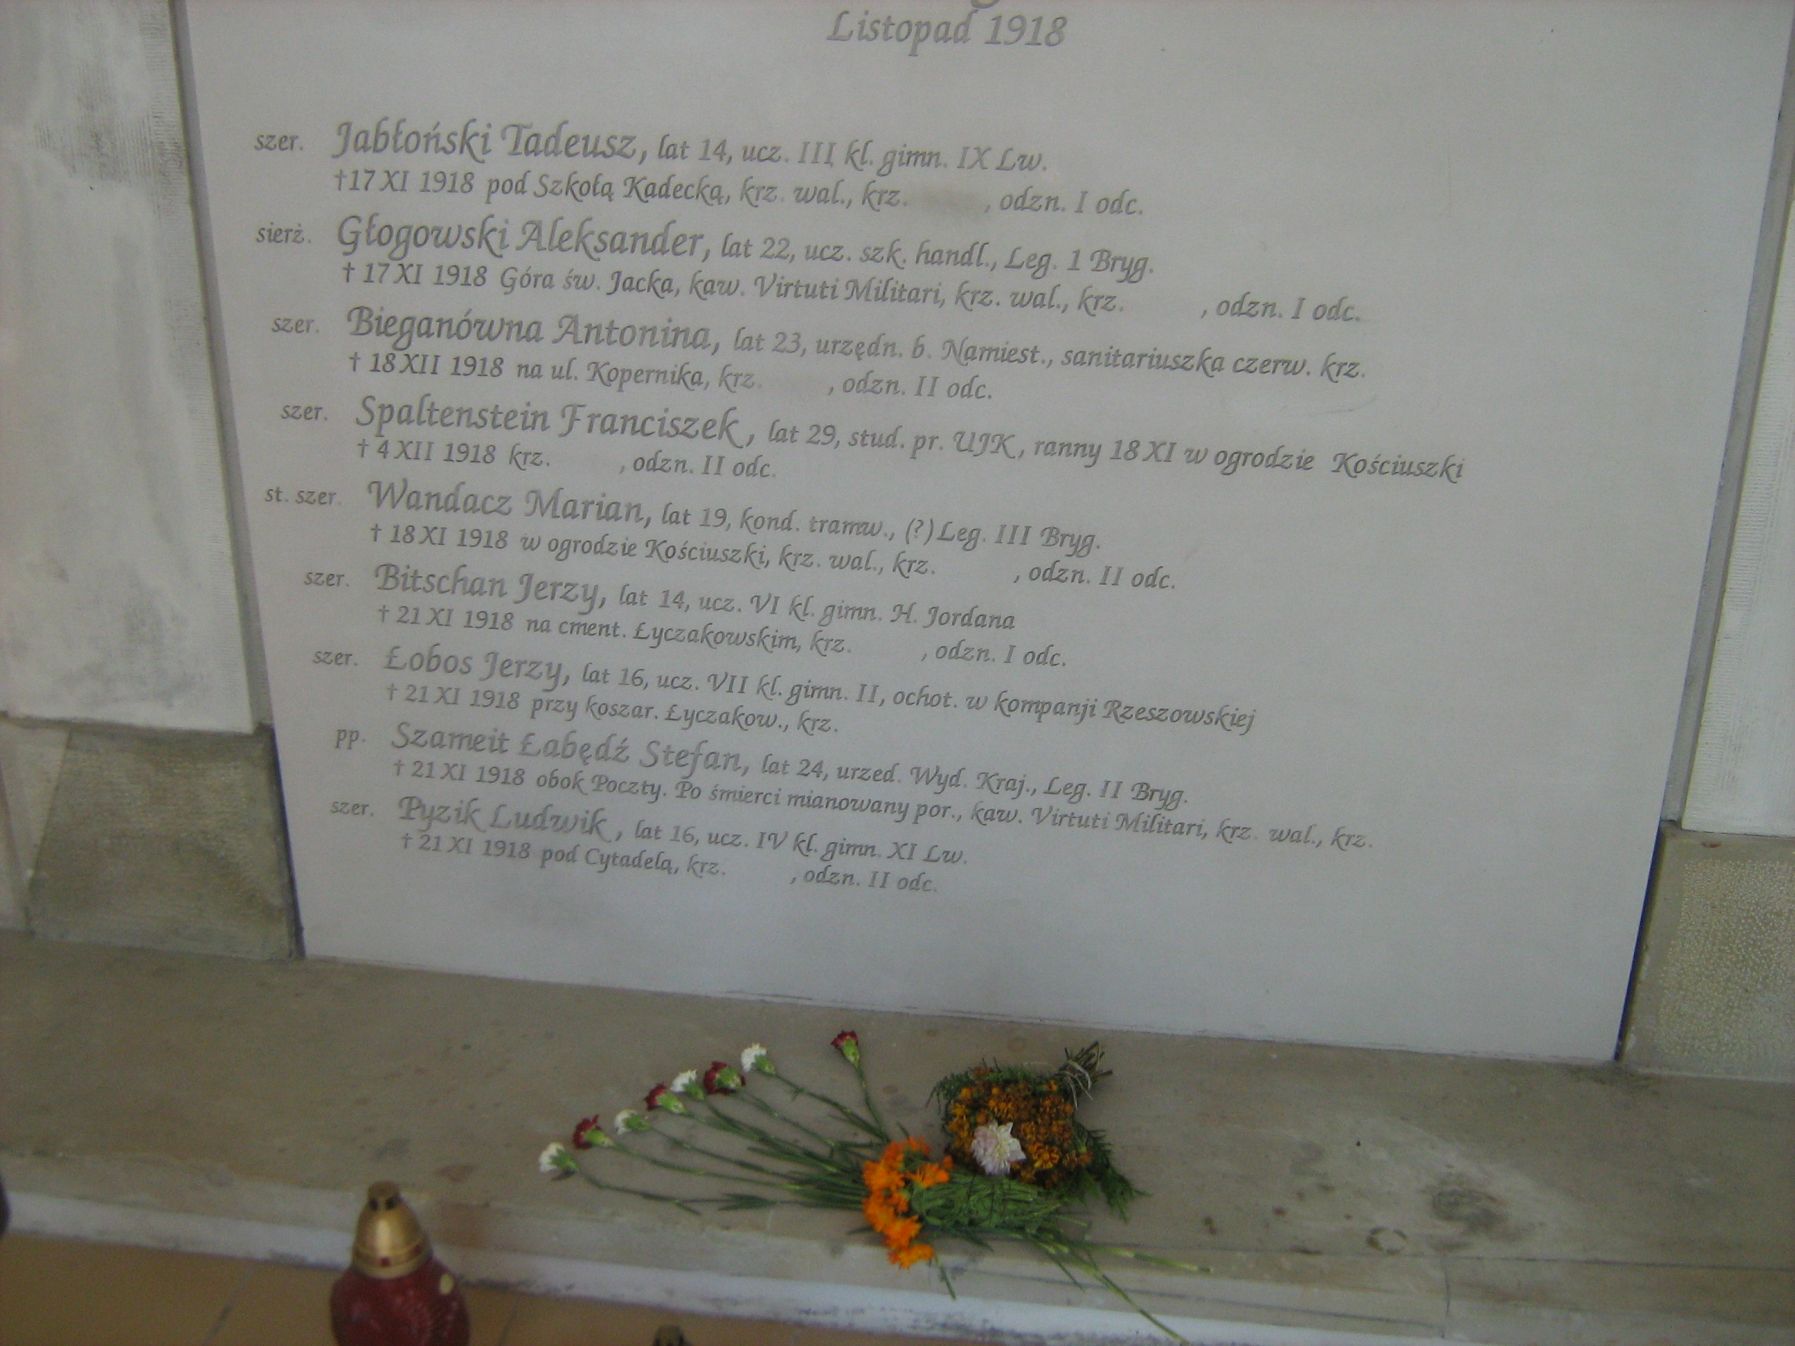 Listopad 1918
szer. Jabłoński Tadeusz, lat 14, ucz. III kl. gimn. IX Lw.
†17 XI 1918 pod Szkołą Kadecką, krz. wal., krz. , odzn. I odc.
sierż. Głogowski Aleksander, lat 22, ucz. szk. handl., Leg. 1 Bryg.
† 17 XI 1918 Góra św. Jacka, kaw. Virtuti Militari, krz. wal., krz. , odzn. I odc.
szer. Bieganówna Antonina, lat 23, urzędn. b. Namiest., sanitariuszka czerw. krz.
† 18 XII 1918 na ul. Kopernika, krz. , odzn. II odc.
szer. Spaltenstein Franciszek, lat 29, stud. pr. UJK, ranny 18 XI w ogrodzie Kościuszki
† 4 XII 1918 krz. , odzn. II odc.
st. szer. Wandacz Marian, lat 19, kond. tramw., (?) Leg. III Bryg.
† 18 XI 1918 w ogrodzie Kościuszki, krz. wal., krz. , odzn. II odc.
szer. Bitschan Jerzy, lat 14, ucz. VI kl. gimn. H. Jordana
† 21 XI 1918 na cment. Łyczakowskim, krz. , odzn. I odc.
szer. Łobos Jerzy, lat 16, ucz. VII kl. gimn. II, ochot. w kompanji Rzeszowskiej
† 21 XI 1918 przy koszar. Łyczakow., krz.
pp. Szameit Łabędź Stefan, lat 24, urzed. Wyd. Kraj., Leg. II Bryg.
† 21 XI 1918 obok Poczty. Po śmierci mianowany por., kaw. Virtuti Militari, krz. wal., krz.
szer. Pyzik Ludwik, lat 16, ucz. IV kl. gimn. XI Lw.
† 21 XI 1918 pod Cytadelą, krz. , odzn. II odc.